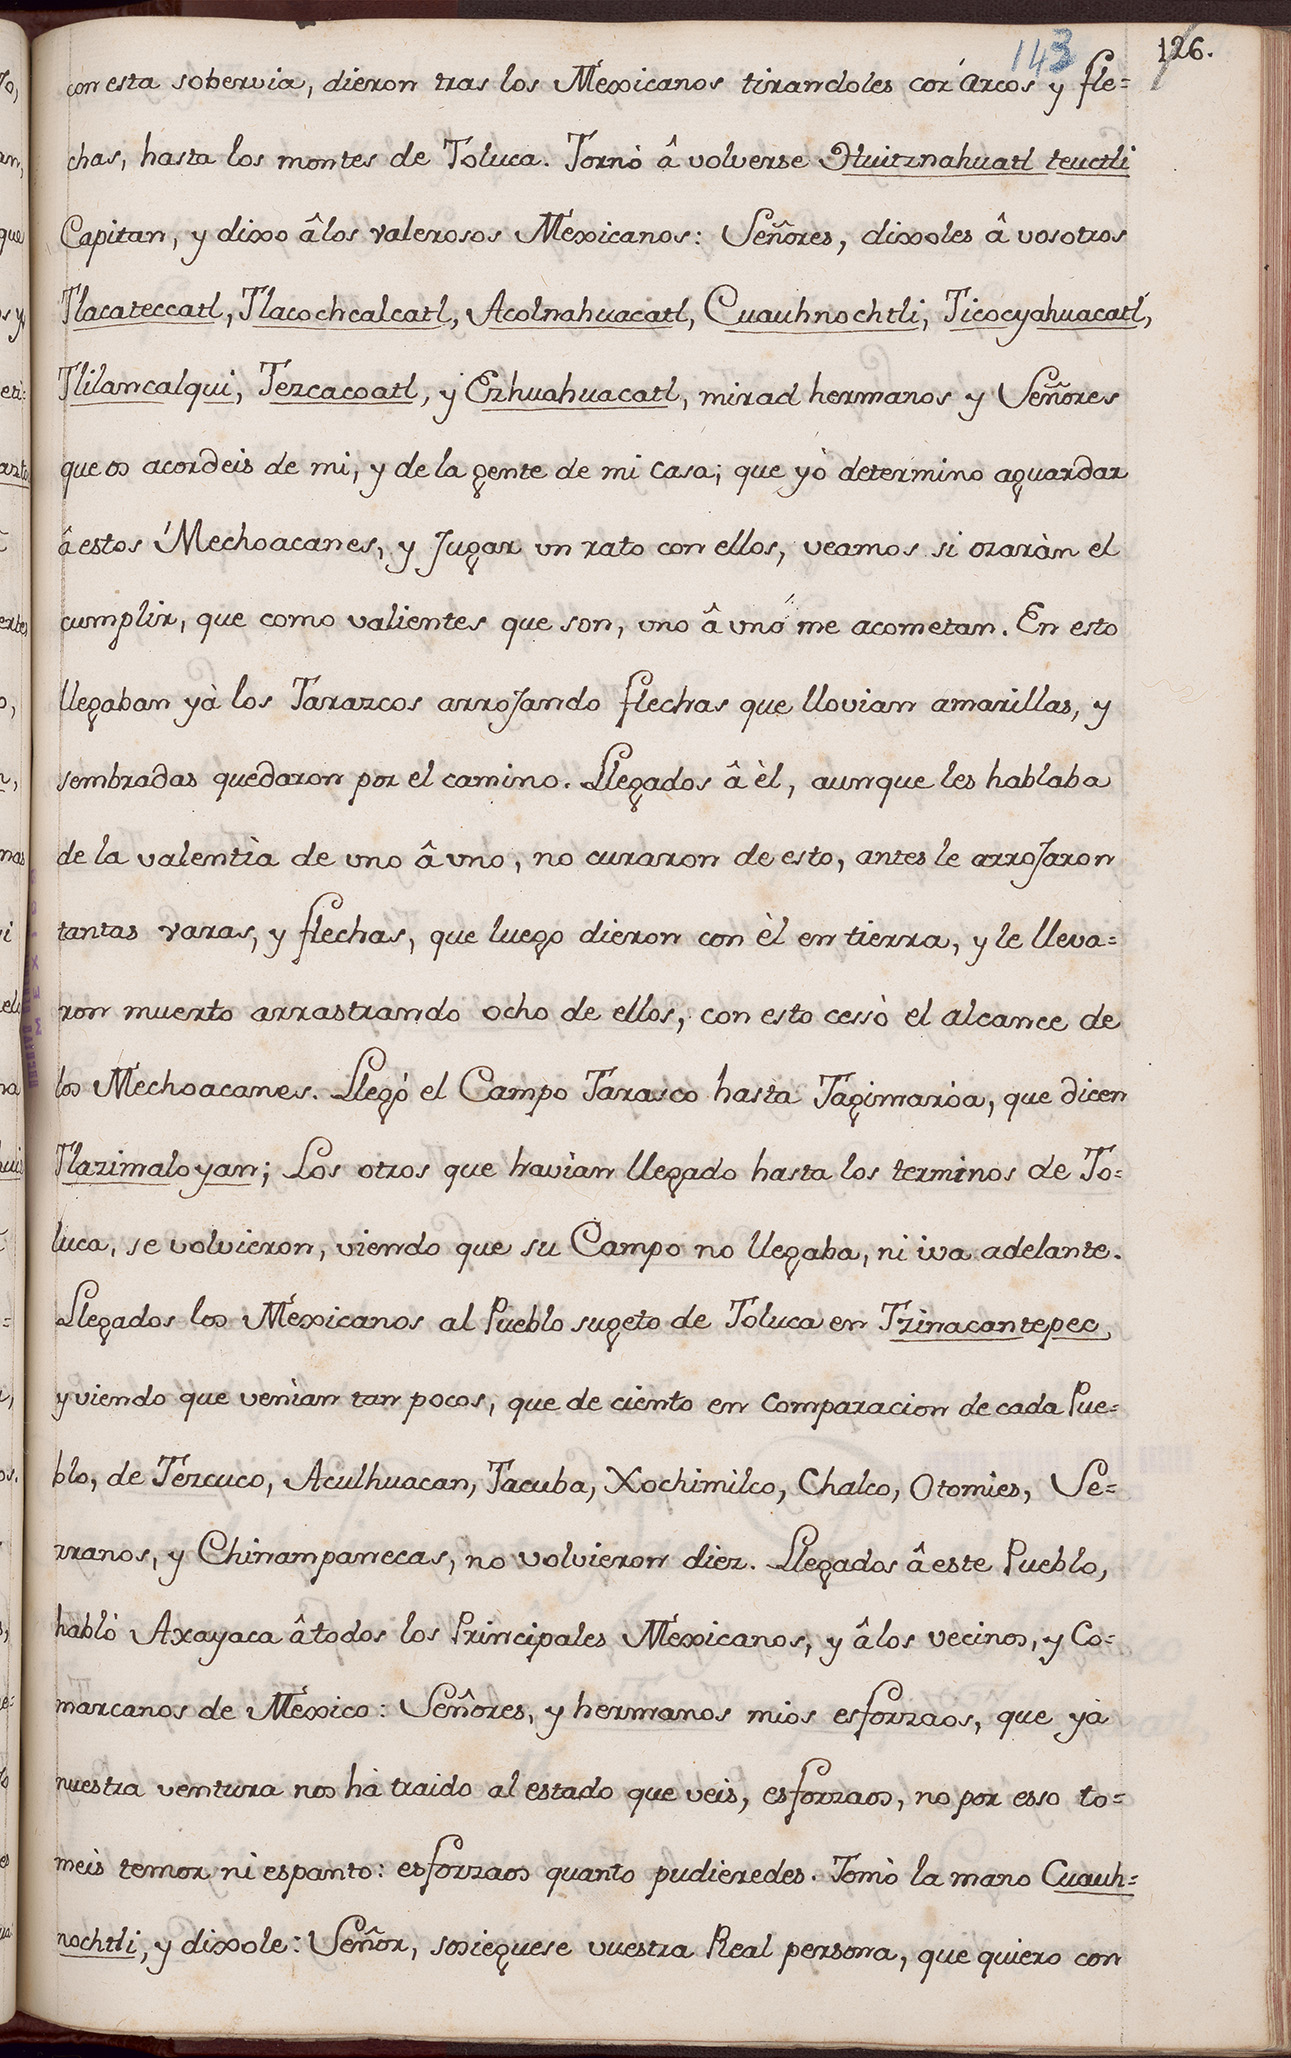 143
126.
con esta sobervia, dieron tras los Mexicanos tirandoles con Arcos y fle=
chas, hasta los montes de Toluca. Tornò â volverse Huitznahuatl teuctli
Capitan, y dixo âlos valerosos Mexicanos: Señores, dixoles â vosotros
Tlacateccatl, Tlacochcalcatl, Acolnahuacatl, Cuauhnochtli, Ticocyahuacatl,
Tlilancalqui, Tezcacoatl, y Ezhuahuacatl, mirad hermanos y Señores
que os acordeis de mi, y de la gente de mi casa; que yò determino aguardar
â estos Mechoacanes, y Jugar un rato con ellos, veamos si ozaràn el
cumplir, que como valientes que son, uno â uno me acometan. En esto
llegaban yà los Tarazcos arroJando flechas que llovian amarillas, y
sembradas quedaron por el camino. Llegados â èl, aunque les hablaba
de la valentìa de uno â uno, no curaron de esto, antes le arroJaron
tantas varas, y flechas, que luego dieron con èl en tierra, y le lleva=
ron muerto arrastrando ocho de ellos, con esto cessò el alcance de
los Mechoacanes. Llegó el Campo Tarasco hasta Tagimaròa, que dicen
Tlazimaloyan; Los otros que havìan llegado hasta los terminos de To=
luca, se volvieron, viendo que su Campo no llegaba, ni iva adelante.
Llegados los Mexicanos al Pueblo sugeto de Toluca en Tzinacantepec,
y viendo que venìan tan pocos, que de ciento en comparacion de cada Pue=
blo, de Tezcuco, Aculhuacan, Tacuba, Xochimilco, Chalco, Otomìes, Se=
rranos, y Chinampanecas, no volvieron diez. Llegados â este Pueblo,
hablò Axayaca âtodos los Principales Mexicanos, y âlos vecinos, y Co=
marcanos de México: Señores, y hermanos mios esforzaos, que yà
nuestra ventura nos hà traido al estado que veis, esforzaos, no por esso to=
meis temor ni espanto: esforzaos quanto pudieredes. Tomò la mano Cuauh=
nochtli, y dixole: Señor, sosieguese vuestra Real persona, que quiero con